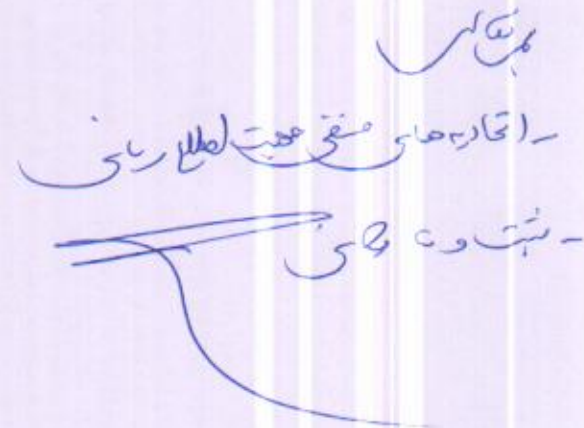 بسمه تعالی
- اتحادیه های صنفی جهت اطلاع رسانی
- ثبت و